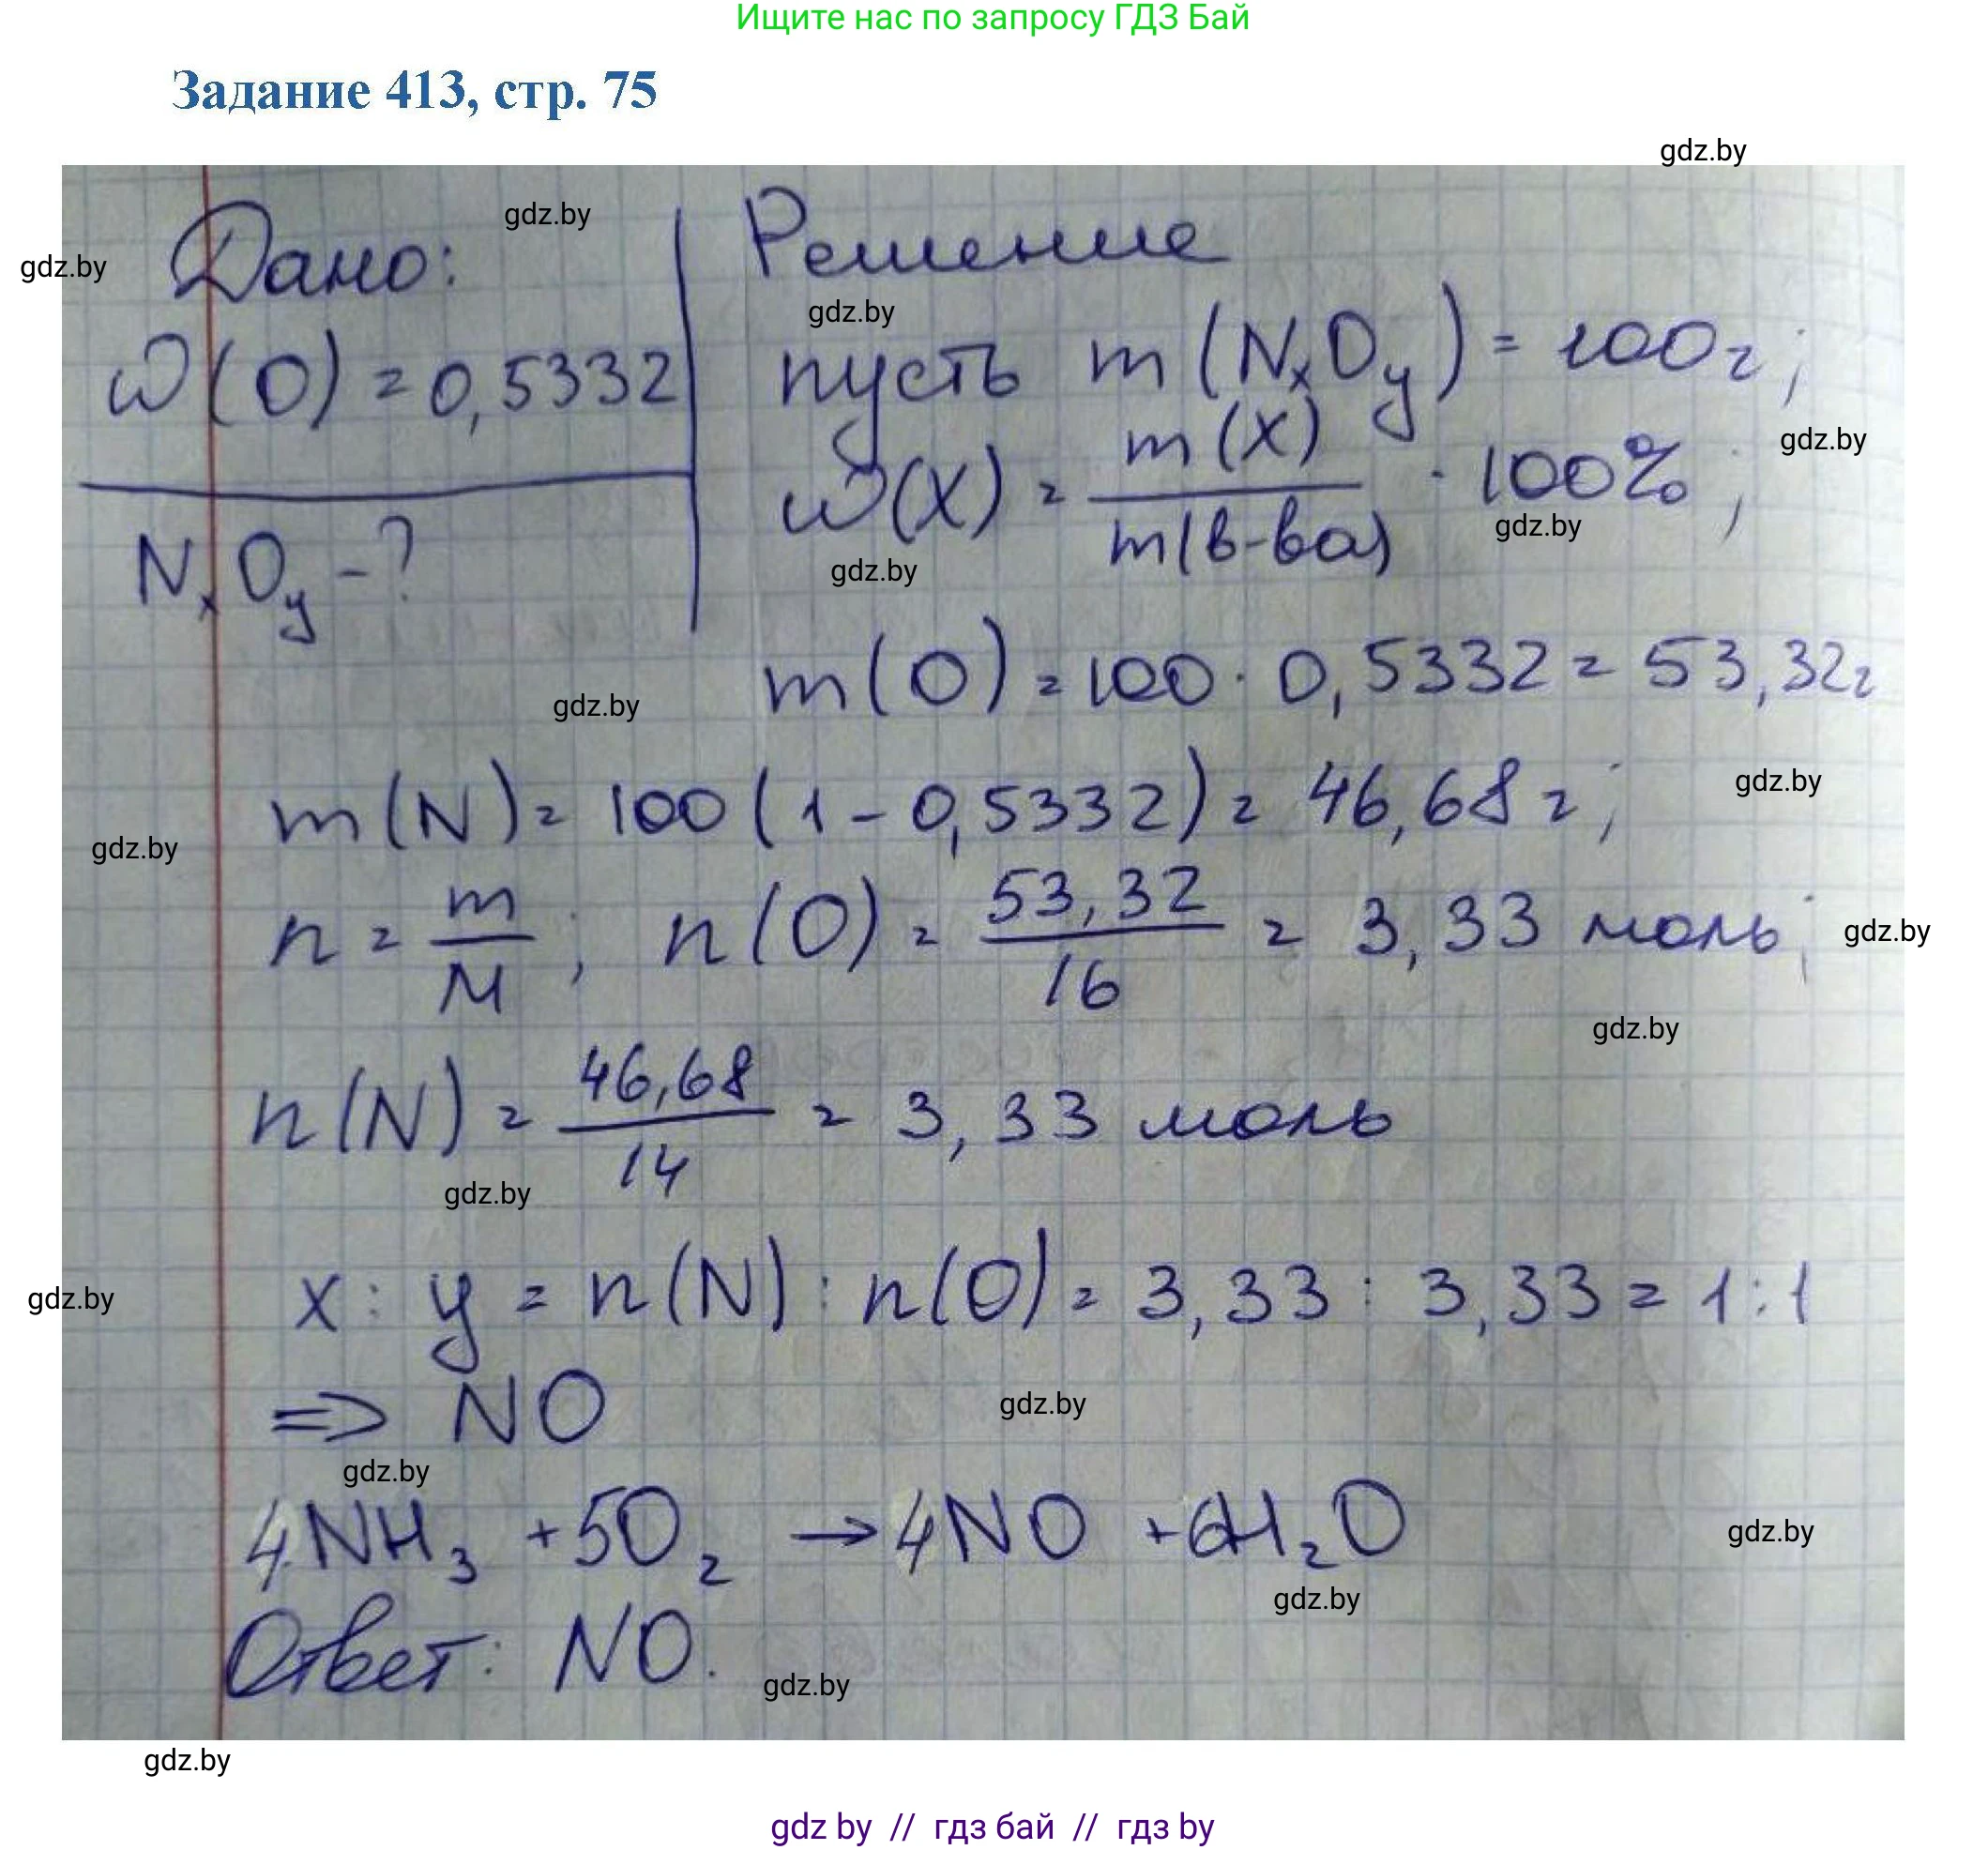 Ищите нас по запросу ГДЗ Бай
Задание 413, стр. 75
gdz.by
gdz.by
gdz.by
Дано:
Решение
gdz.by
ω(O) = 0,5332
пусть m(NₓOᵧ) = 100г;
gdz.by
ω(X) = m(X)/m(в-ва) · 100%;
gdz.by
NₓOᵧ - ?
gdz.by
m(O) = 100 · 0,5332 = 53,32г
gdz.by
m(N) = 100(1 - 0,5332) = 46,68г;
gdz.by
gdz.by
n = m/M; n(O) = 53,32/16 = 3,33 моль;
gdz.by
gdz.by
n(N) = 46,68/14 = 3,33 моль
gdz.by
x : y = n(N) : n(O) = 3,33 : 3,33 = 1:1
gdz.by
⇒ NO
gdz.by
gdz.by
4NH₃ + 5O₂ → 4NO + 6H₂O
gdz.by
gdz.by
Ответ: NO.
gdz.by
gdz.by
gdz by // гдз бай // гдз by